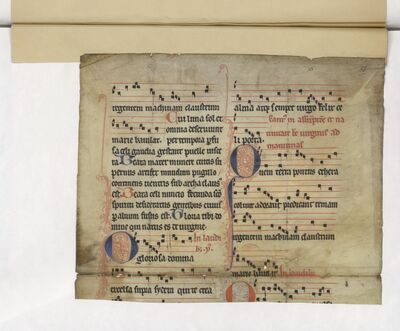 regentem machinam claustrum
Cui luna sol et
omnia deseruiunt
marie baiulat. per tempora pfu
sa celi gaudia gestant puelle uisce
ra Beata mater munere cuius su
pernus artifex mundum pugillo
continens uentris sub archa claus
est. Beata celi nuncio fecunda sco
spiritu desideratus gentibus cuius
p aluum fusus est. Gloria tibi do
mine qui natus es de uirgine.
In laudi
bz. y.
O gloriosa domina
excelsa supra sydera qui te crea
alma atq; semper uirgo felix ce
li porta.
ad
matutinas
Quem terra pontus ethera
colunt adorant predicant trinam
regentem machinam claustrum
marie baiulat In laudibz